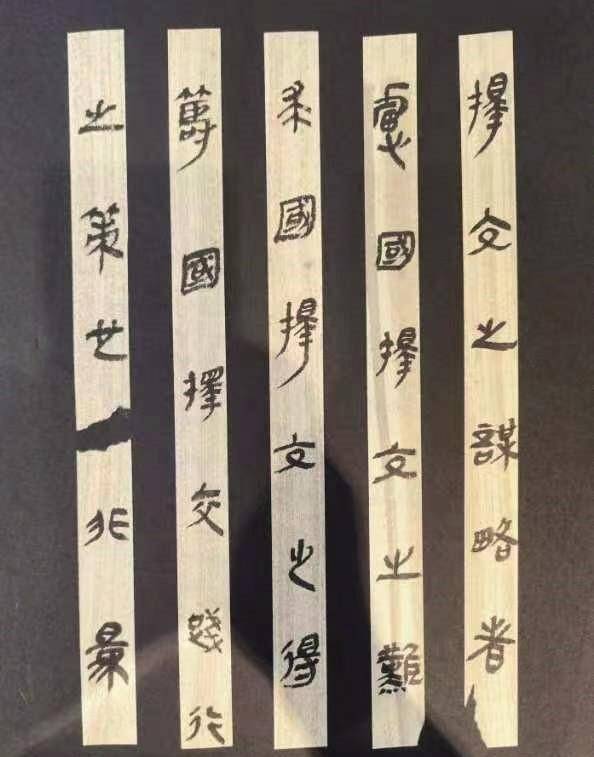 擇交之謀略者
慮國擇交之難
國擇交之得
國擇交踐行
之策也